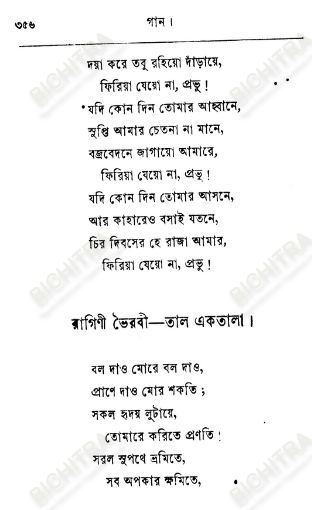 ৩৫৬
গান।
দয়া করে তবু রহিয়ো দাঁড়ায়ে,
ফিরিয়া যেয়ো না, প্রভু!
যদি কোন দিন তোমার আহ্বানে,
সুপ্তি আমার চেতনা না মানে,
বজ্রবেদনে জাগায়ো আমারে,
ফিরিয়া যেয়ো না, প্রভু!
যদি কোন দিন তোমার আসনে,
আর কাহারেও বসাই যতনে,
চির দিবসের হে রাজা আমার,
ফিরিয়া যেয়ো না, প্রভু!
রাগিণী ভৈরবী—তাল একতালা।
বল দাও মোরে বল দাও,
প্রাণে দাও মোর শকতি;
সকল হৃদয় লুটায়ে,
তোমারে করিতে প্রণতি!
সরল সুপথে ভ্রমিতে,
সব অপকার ক্ষমিতে,
BICHITRA